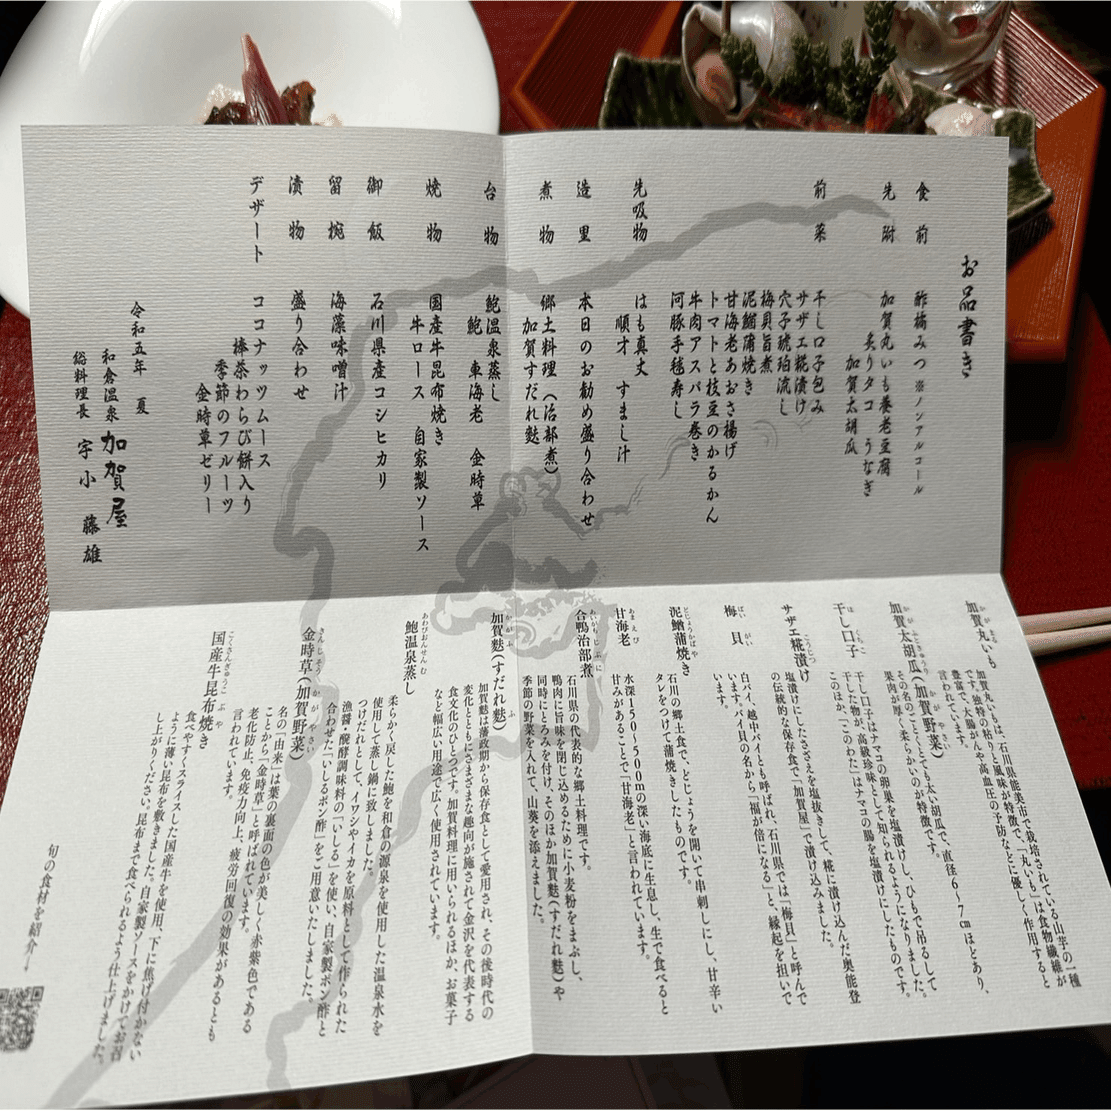 お品書き
食前 酢橘みつ ※ノンアルコール
先附 加賀丸いも養老豆腐
炙りタコ うなぎ
加賀太胡瓜
前菜 干し口子包み
サザエ糀漬け
穴子琥珀流し
梅貝旨煮
泥鰌蒲焼き
甘海老あおさ揚げ
トマトと枝豆のかるかん
牛肉アスパラ巻き
河豚手毬寿し
先吸物 はも真丈
順才 すまし汁
造里 本日のお勧め盛り合わせ
煮物 郷土料理(治部煮)
加賀すだれ麩
台物 鮑温泉蒸し
鮑 車海老 金時草
焼物 国産牛昆布焼き
牛ロース 自家製ソース
御飯 石川県産コシヒカリ
留椀 海藻味噌汁
漬物 盛り合わせ
デザート ココナッツムース
棒茶わらび餅入り
季節のフルーツ
金時草ゼリー
令和五年 夏
和倉温泉 加賀屋
総料理長 宇小 藤雄
加賀丸いも
加賀丸いもは、石川県能美市で栽培されている山芋の一種
です。独特の粘りと風味が特徴で、「丸いも」は食物繊維が
豊富で、大腸がんや高血圧の予防などに優しく作用すると
言われています。
加賀太胡瓜(加賀野菜)
その名のごとくとても太い胡瓜で、直径6~7㎝ほどあり、
果肉が厚く柔らかいのが特徴です。
干し口子
干し口子とはナマコの卵巣を塩漬けし、ひもで吊るして
干した物が、高級珍味として知られるようになりました。
このほか、「このわた」はナマコの腸を塩漬けにしたものです。
サザエ糀漬け
塩漬けにしたさざえを塩抜きして、糀に漬け込んだ奥能登
の伝統的な保存食で「加賀屋」で漬け込みました。
梅貝
白バイ、越中バイとも呼ばれ、石川県では「梅貝」と呼んで
います。バイ貝の名から「福が倍になる」と、縁起を担いで
います。
泥鰌蒲焼き
石川の郷土食で、どじょうを開いて串刺しにし、甘辛い
タレをつけて蒲焼きしたものです。
甘海老
水深150~500mの深い海底に生息し、生で食べると
甘みがあることで「甘海老」と言われています。
合鴨治部煮
石川県の代表的な郷土料理です。
鴨肉に旨味を閉じ込めるために小麦粉をまぶし、
同時にとろみを付け、そのほか加賀麩(すだれ麩)や
季節の野菜を入れて、山葵を添えました。
加賀麩(すだれ麩)
加賀麩は藩政期から保存食として愛用され、その後時代の
変化とともにさまざまな趣向が施されて金沢を代表する
食文化のひとつです。加賀料理に用いられるほか、お菓子
など幅広い用途で広く使用されています。
鮑温泉蒸し
柔らかく戻した鮑を和倉の源泉を使用した温泉水を
使用して蒸し鍋に致しました。
つけだれとして、イワシやイカを原料として作られた
漁醤・醗酵調味料の「いしる」を使い、自家製ポン酢と
合わせた「いしるポン酢」をご用意いたしました。
金時草(加賀野菜)
名の「由来」は葉の裏面の色が美しく赤紫色である
ことから「金時草」と呼ばれています。
老化防止、免疫力向上、疲労回復の効果があるとも
言われています。
国産牛昆布焼き
食べやすくスライスした国産牛を使用、下に焦げ付かない
ように薄い昆布を敷きました。自家製ソースをかけてお召
し上がりください。昆布まで食べられるよう仕上げました。
旬の食材を紹介